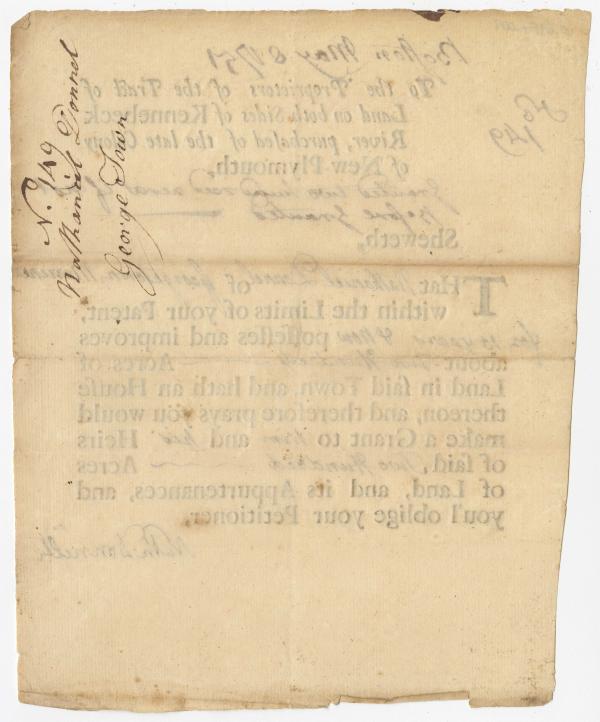 N. 149
Nathaniel Donnel
George Town
Boston May 8 1751
No
149
To the Proprietors of the Tract of
Land on both Sides of Kennebeck
River, purchased of the late Colony
of New-Plymouth,
Granted two hundred acres
Before Granted
Sheweth,
THat Nathaniel Donnel of George Town
within the Limits of your Patent,
for years & now possesses and improves
about Two Hundred Acres of
Land in said Town, and hath an House
thereon, and therefore prays you would
make a Grant to him and his Heirs
of said, Two Hundred Acres
of Land, and its Appurtenances, and
you'l oblige your Petitioner,
Nath. Donnell